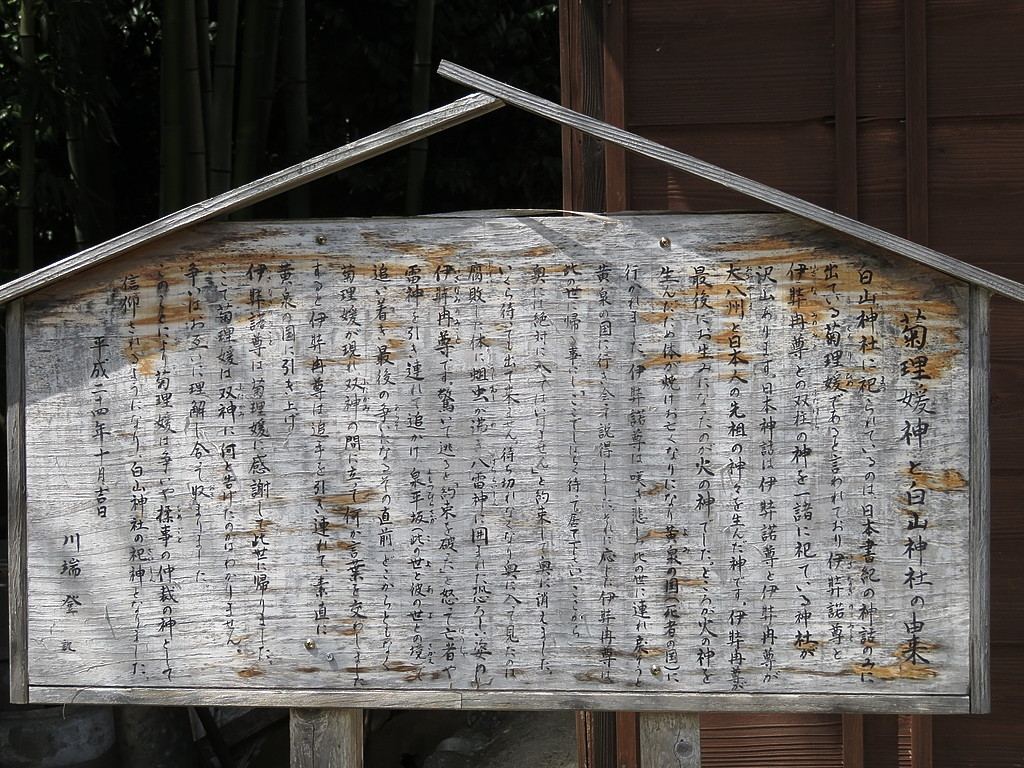 菊理媛神と白山神社の由来
白山神社に祀られているのは日本書紀の神話のみに
出ている菊理媛であると言われており伊弉諾尊と
伊弉冉尊との双柱の神を一諸に祀ている神社が
沢山あります。日本神話は伊弉諾尊と伊弉冉尊が
大八州と日本人の先祖の神々を生んだ神です。伊弉冉尊が
最後にお生みになったのが火の神でしたところが火の神を
生んだため体が焼けお亡くなりになり黄泉の国(死者の国)に
行かれました、伊弉諾尊は嘆き悲しみ此の世に連れ戻そうと
黄泉の国に行き会って説得しましたそれに応じた伊弉冉尊は
此の世に帰る事にしここでしばらく待て居て下さい、ここから
奥には絶対に入てはいけませんと約束して奥に消えました。
いくら待っても出て来ません待ち切れなくなり奥に入って見たのは
腐敗した体に蛆虫が湧き八雷神に囲まれた恐ろしい姿の
伊弉冉尊です。驚いて逃ると約束を破ったと怒て亡者や
雷神を引き連れて追かけ泉平坂此の世と彼の世との境で
追い着き最後の争となるその直前どこからともなく
菊理媛が現れ双神の間に立て何か言葉を交わしました
すると伊弉冉尊は追手を引き連れて素直に
黄泉の国に引き上げ
伊弉諾尊は菊理媛に感謝して此世に帰りました。
ここで菊理媛は双神に何と告げたのかはわかりません。
争いはお互いに理解し合って収まりました
このことにより菊理媛は争いや揉事の仲裁の神として
信仰されるようになり白山神社の祀神となりました。
平成二十四年十月吉日
川端 登 記